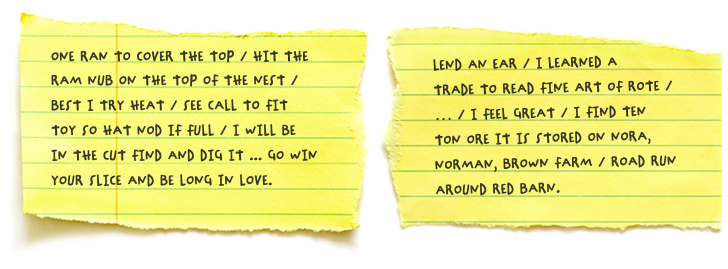 ONE RAN TO COVER THE TOP / HIT THE
RAM NUB ON THE TOP OF THE NEST /
BEST I TRY HEAT / SEE CALL TO FIT
TOY SO HAT NOD IF FULL / I WILL BE
IN THE CUT FIND AND DIG IT ... GO WIN
YOUR SLICE AND BE LONG IN LOVE.
LEND AN EAR / I LEARNED A
TRADE TO READ FINE ART OF ROTE /
... / I FEEL GREAT / I FIND TEN
TON ORE IT IS STORED ON NORA,
NORMAN, BROWN FARM / ROAD RUN
AROUND RED BARN.